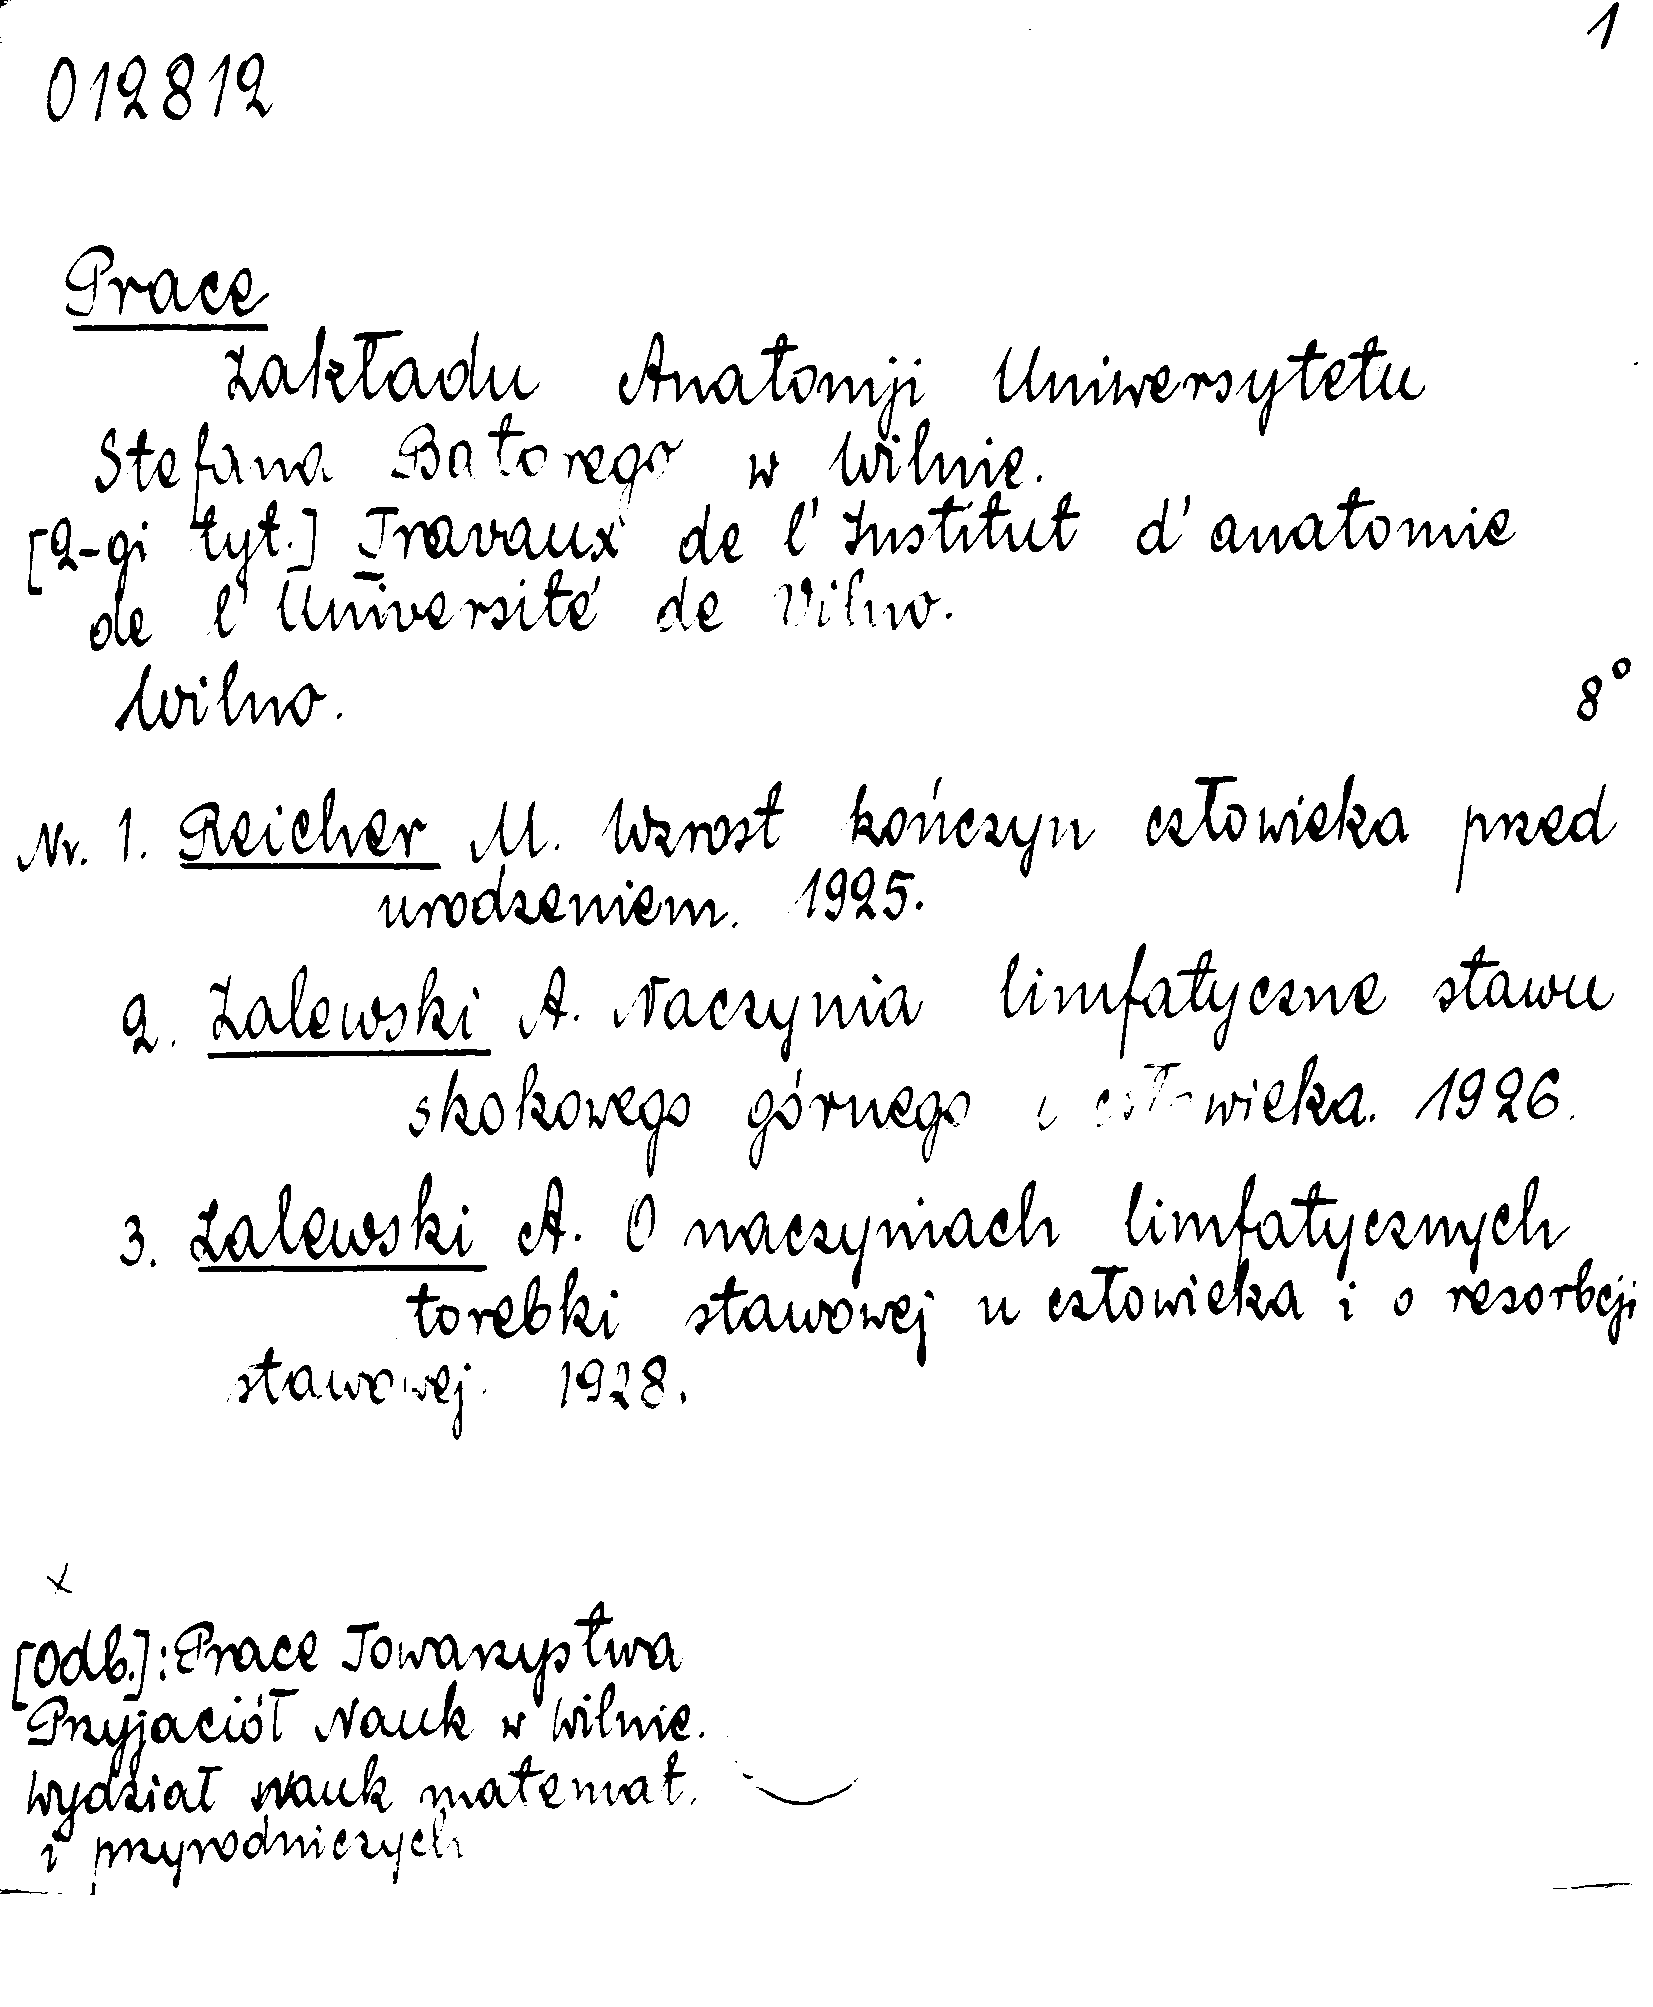 1
012812
Prace
Zakładu Anatomji Uniwersytetu
Stefana Batorego w Wilnie.
[2-gi tyt.] Travaux de l'Institut d'anatomie
de l'Université de Vilno.
Wilno. 8°
Nr. 1. Reicher M. Wzrost kończyn człowieka przed
urodzeniem. 1925.
2. Zalewski A. Naczynia limfatyczne stawu
skokowego górnego u człowieka. 1926.
3. Zalewski A. O naczyniach limfatycznych
torebki stawowej u człowieka i o resorbcji
stawowej. 1928.
x
[Odb.]: Prace Towarzystwa
Przyjaciół Nauk w Wilnie.
Wydział Nauk matemat.
i przyrodniczych